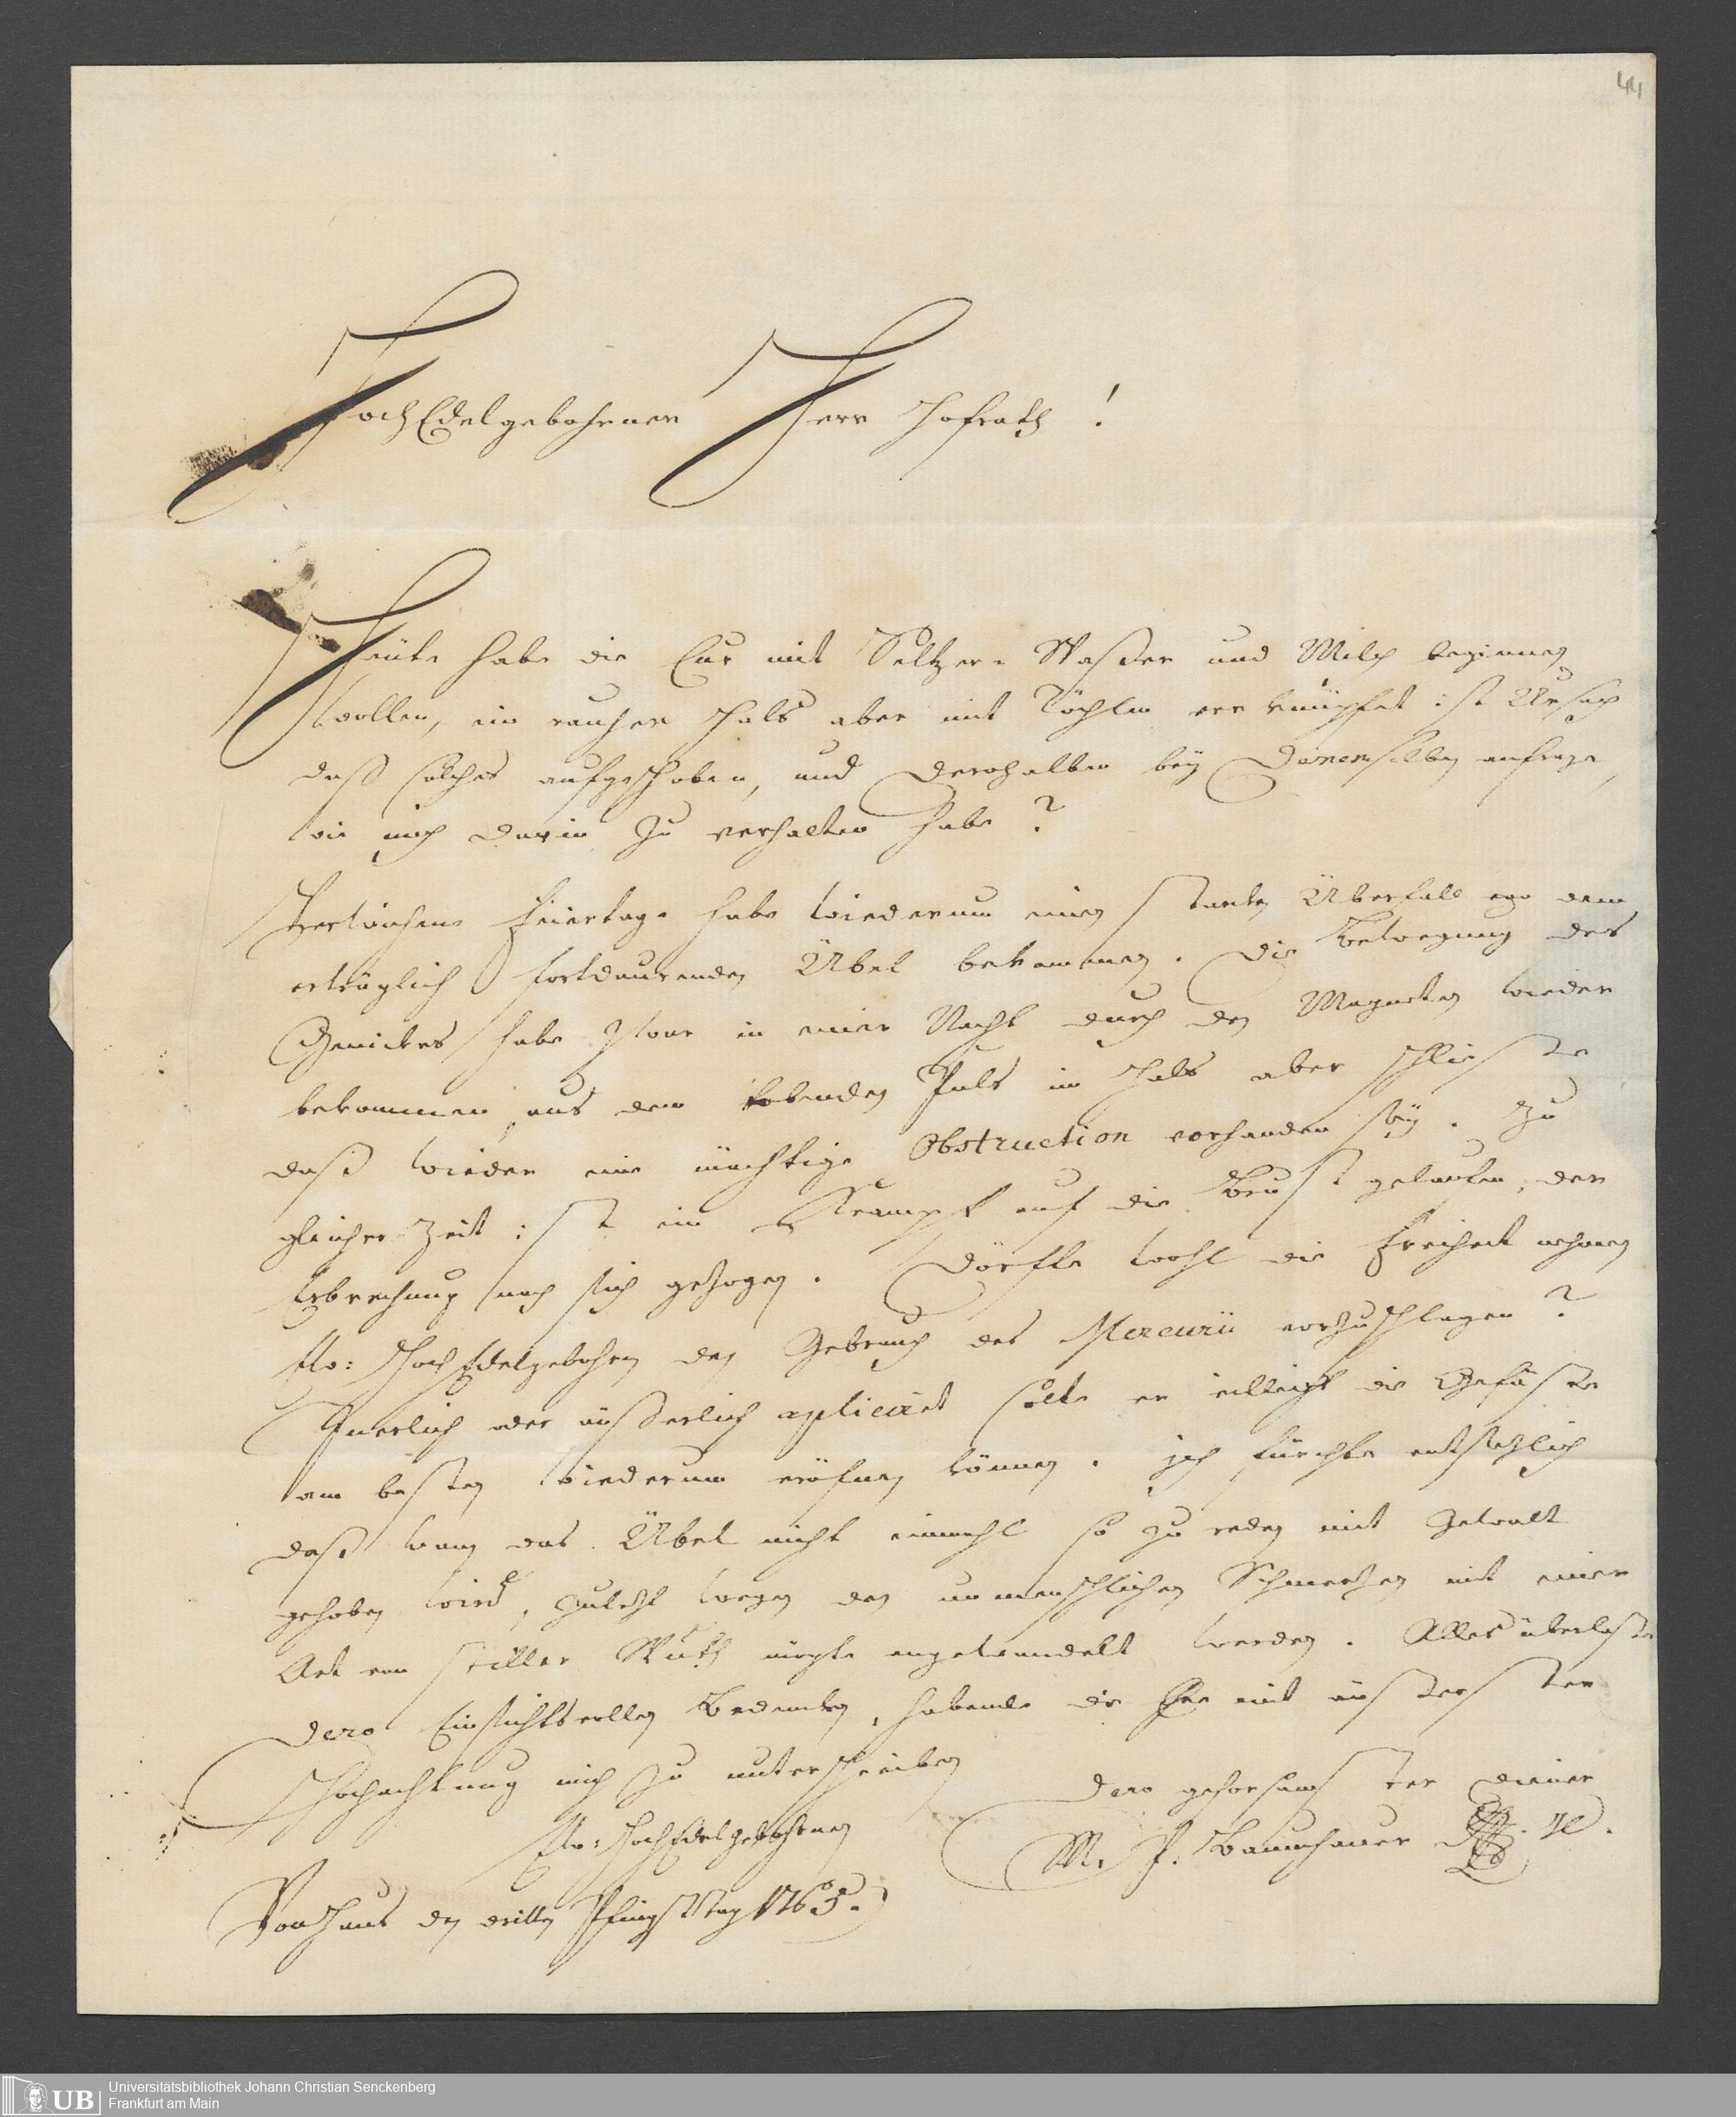 44
HochEdelgebohrner Herr Hofrath!
Heüte habe die Cur mit Seltzer- Waßer und Milch beginnen
wollen, ein rauher Hals aber mit verknüpfet ist Ursach
daß solches aufgeschoben, und derohalben beÿ Denenselben anfrage,
wie mich darin zu verhalten habe?
Verwichene Feiertage habe wiederum einen starken Überfall von dem
erträglich fortdaurenden Übel bekommen. Die Bewegung des
Genickes habe zwar in einer Nacht durch den Magneten wieder
bekommen, aus dem tobenden Puls im Hals aber schließe
daß wieder eine mächtige Obstruction vorhanden seÿ. Zu
gleicher Zeit ist ein Krampf auf die Brust gelaufen, der
Erbrechung nach sich gezogen. Dörffte wohl die Freiheit nehmen
Ew: HochEdelgebohren den Gebrauch des Mercurii vorzuschlagen?
Innerlich oder äußerlich apliciret solte er villeicht die Gefäße
am besten wiederum eröfnen können. ich fürchte entsetzlich
daß wann das Übel nicht einmahl so zu reden mit Gewalt
gehoben wird, zuletzt wegen den unmenschlichen Schmertzen mit einer
Art von stiller Wuth mögte angewandelt werden. Alles überlaße
Dero Einsichtsvollen Bedencken, habende die Ehre mit äusserster
Hochachtung mich zu unterschreiben
Ew: HochEdelgebohrnen
Dero gehorsamster Diener
M. J. Baumhauer
Von Haus den dritten PfingstTag 1765.
UB
Universitätsbibliothek Johann Christian Senckenberg
Frankfurt am Main